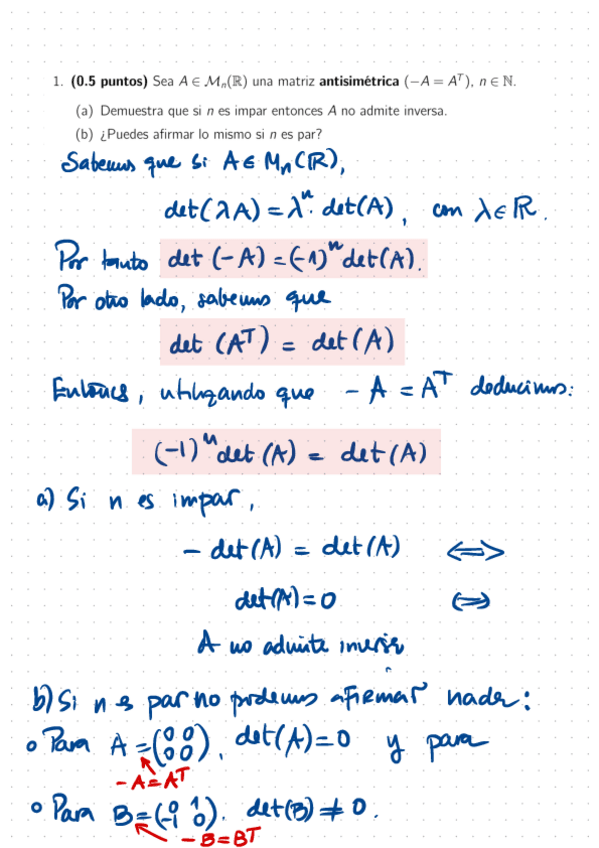 1. (0.5 puntos) Sea A ∈ Mₙ(ℝ) una matriz antisimétrica (−A = Aᵀ), n ∈ ℕ.
(a) Demuestra que si n es impar entonces A no admite inversa.
(b) ¿Puedes afirmar lo mismo si n es par?
Sabemos que si A ∈ Mₙ(ℝ),
det(λA) = λⁿ· det(A), con λ ∈ ℝ.
Por tanto det (−A) = (−1)ⁿ det(A).
Por otro lado, sabemos que
det (Aᵀ) = det(A)
Entonces, utilizando que −A = Aᵀ deducimos:
(−1)ⁿ det(A) = det(A)
a) Si n es impar,
− det(A) = det(A) ⟺
det(A) = 0 ⟺
A no admite inversa
b) Si n es par no podemos afirmar nada:
o Para A = (0 0 0 0), det(A) = 0 y para
−A = Aᵀ
o Para B = (0 1 −1 0). det(B) ≠ 0.
−B = Bᵀ